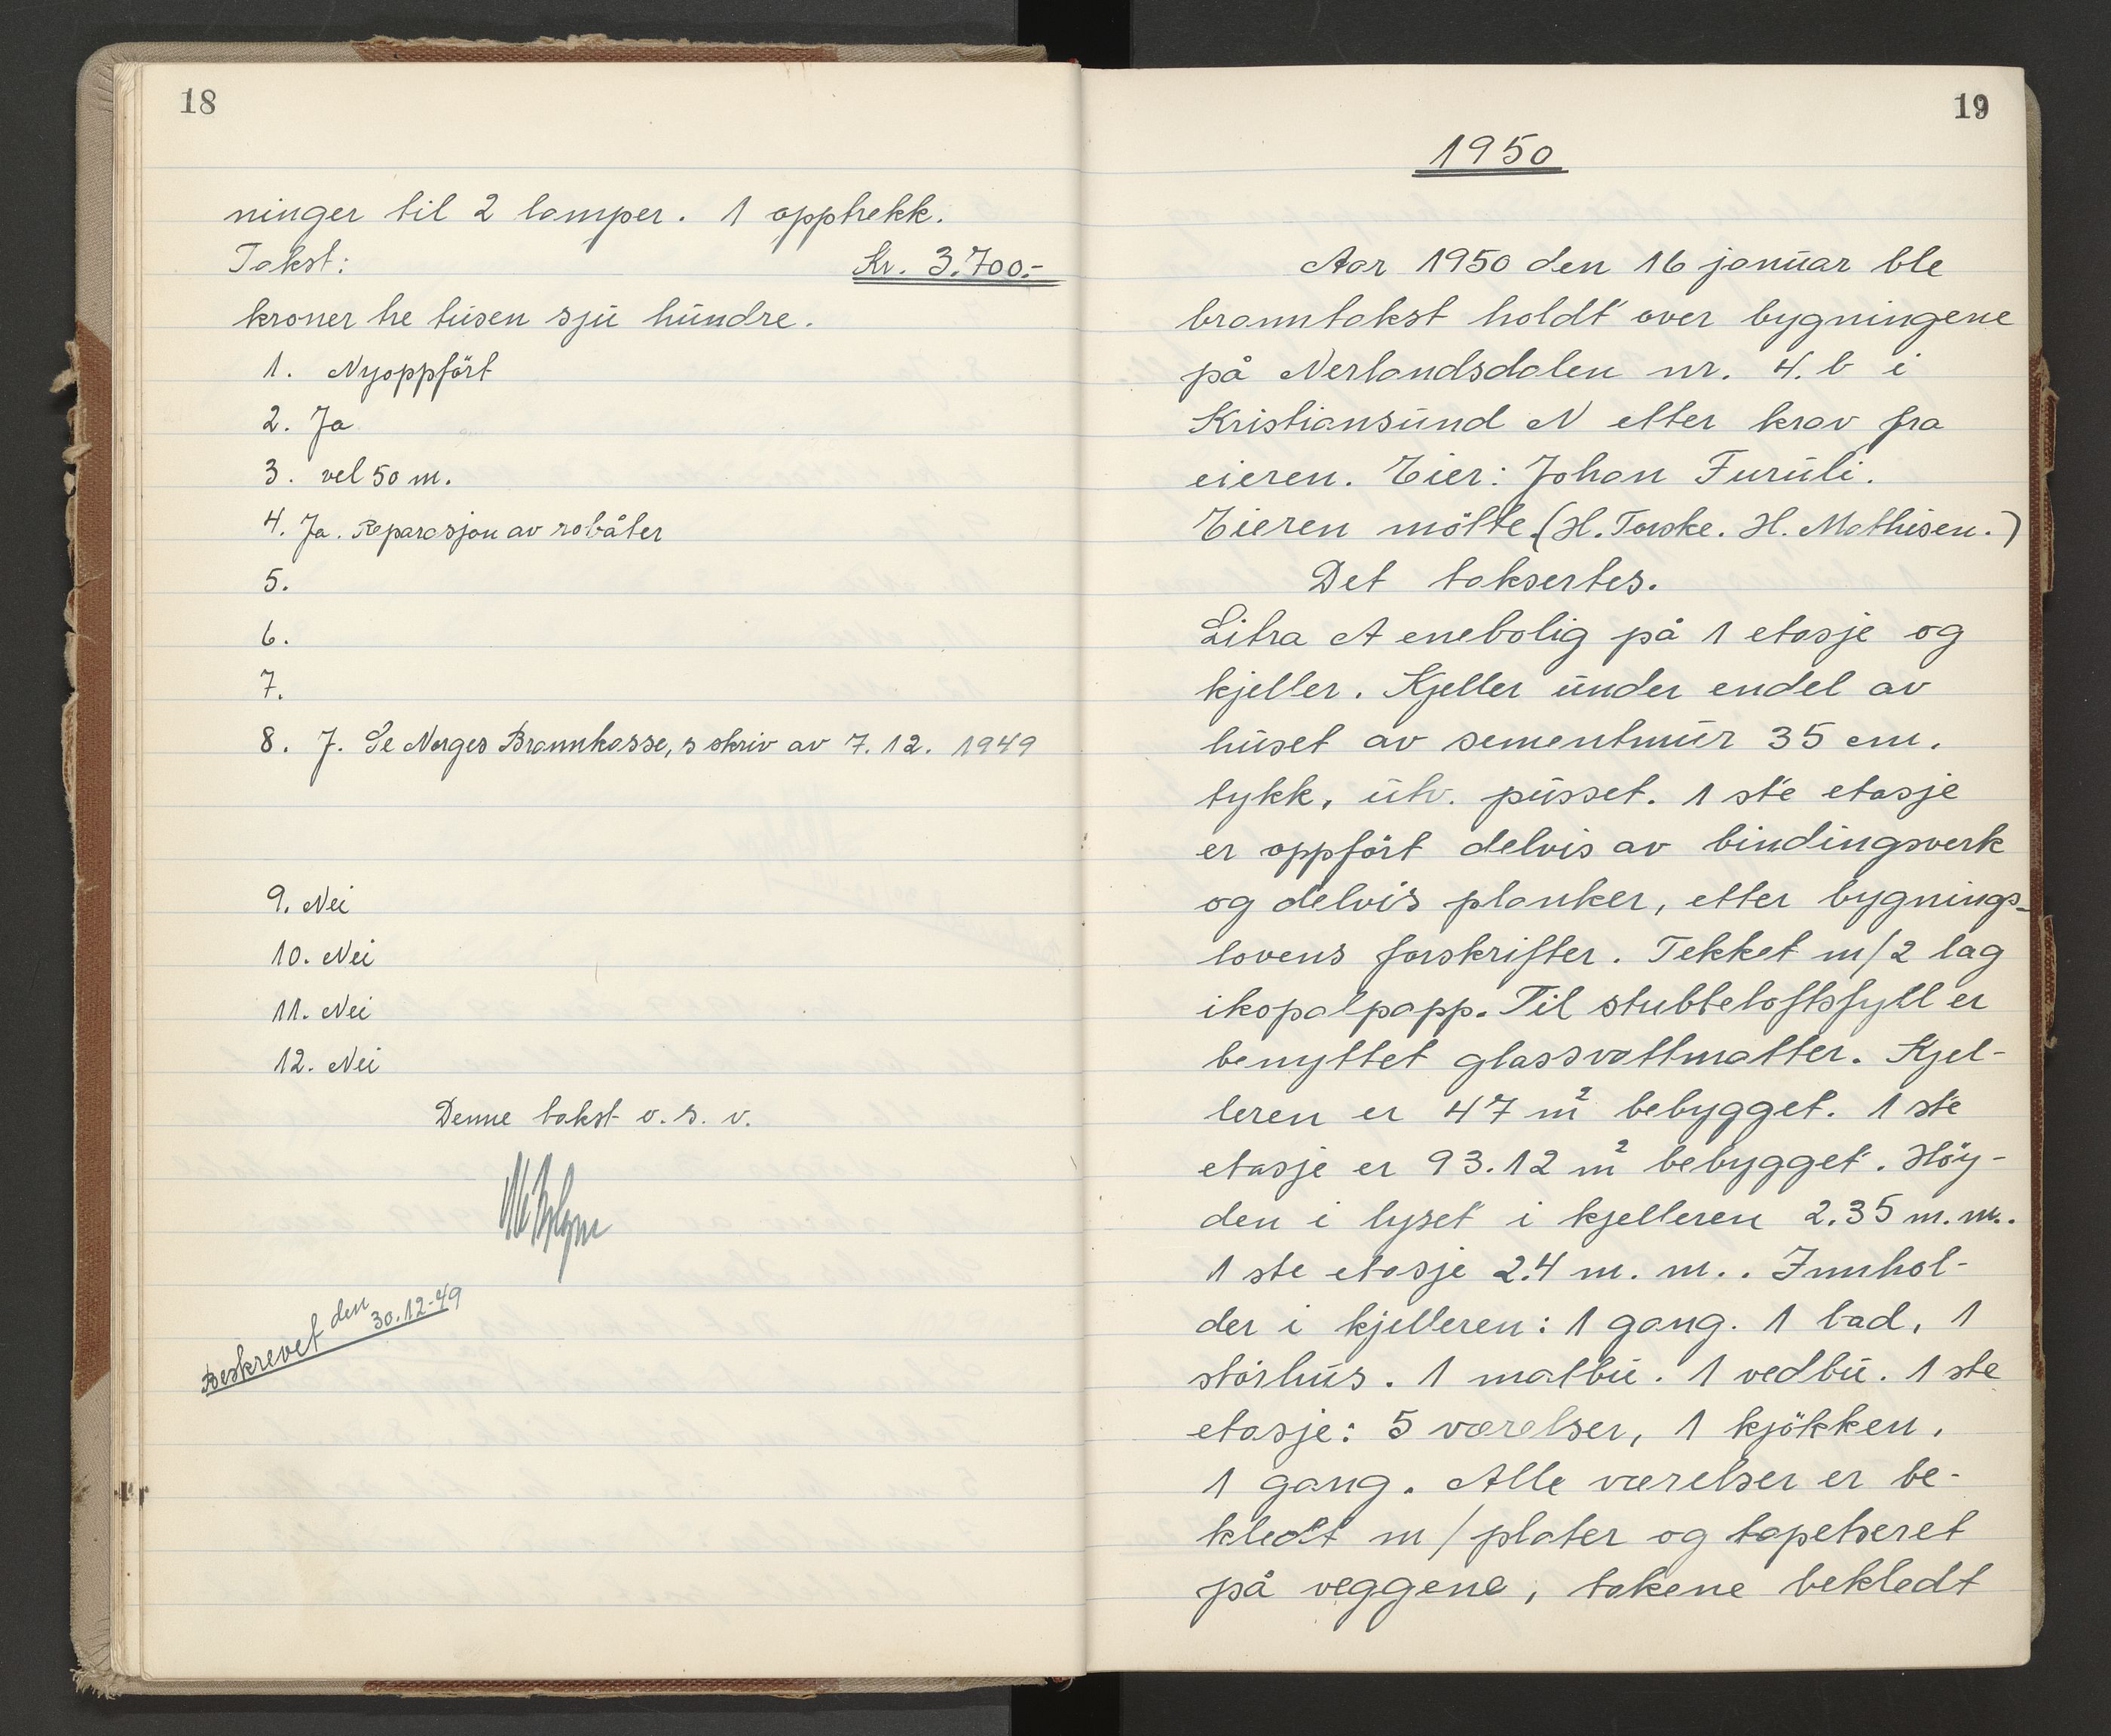 18
ninger til 2 lamper. 1 opptrekk.
Takst: Kr. 3.700.-
kroner tre tusen sju hundre.
1. Nyoppfört
2. Ja
3. vel 50 m.
4. Ja. Reparasjon av robåter
5.
6.
7.
8. J. Se Norges Brannkasse, s skriv av 7.12. 1949
9. Nei
10. Nei
11. Nei
12. Nei
Denne takst o. s. v.
Beskrevet den 30.12-49
19
1950
Aar 1950 den 16 januar ble
branntakst holdt over bygningene
på Nerlandsdalen nr. 4. b i
Kristiansund N etter krav fra
eieren. Eier: Johan Furuli.
Eieren mötte. (H. Torske. H. Mathisen.)
Det taksertes.
Litra A enebolig på 1 etasje og
kjeller. Kjeller under endel av
huset av sementmur 35 cm.
tykk, utv. pusset. 1 ste etasje
er oppfört delvis av bindingsverk
og delvis planker, etter bygnings-
lovens forskrifter. Tekket m/2 lag
ikopalpapp. Til stubbeloftsfyll er
benyttet glassvattmatter. Kjel-
leren er 47 m² bebygget. 1 ste
etasje er 93.12 m² bebygget. Höy-
den i lyset i kjelleren 2.35 m.m..
1 ste etasje 2.4 m. m.. Innhol-
der i kjelleren: 1 gang. 1 bad, 1
storhus. 1 matbu. 1 vedbu. 1 ste
etasje: 5 værelser, 1 kjökken,
1 gang. Alle værelser er be-
kledt m/plater og tapetseret
på veggene, takene bekledt